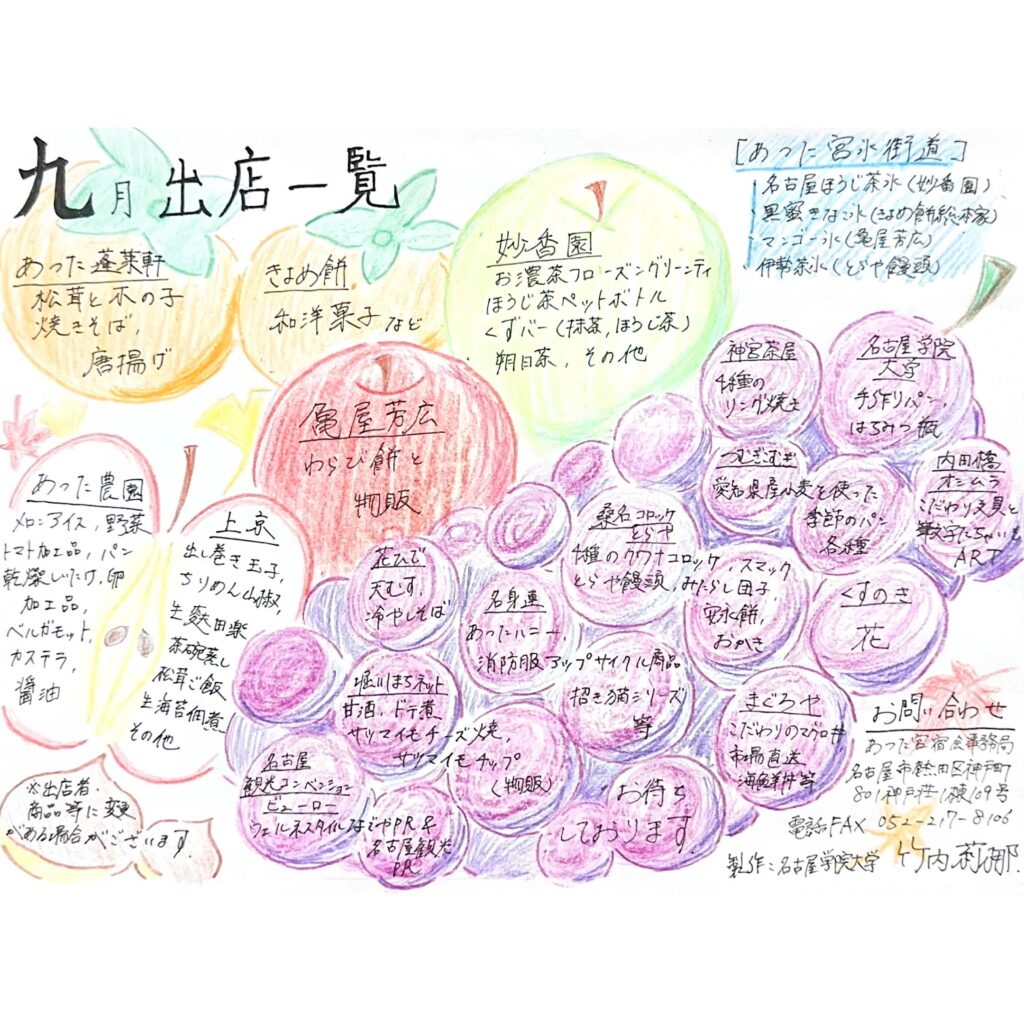 九月出店一覧
[あつた宮氷街道]
・名古屋ほうじ茶氷(妙香園)
・黒蜜きなこ氷(きよめ餅総本家)
・マンゴー氷(亀屋芳広)
・伊勢茶氷(とらや饅頭)
あつた蓬莱軒
松茸と木の子
焼きそば、
唐揚げ
きよめ餅
和洋菓子など
妙香園
お濃茶フローズングリーンティ
ほうじ茶ペットボトル
くずバー(抹茶,ほうじ茶)
朔日茶、その他
亀屋芳広
わらび餅と
物販
神宮茶屋
4種の
リング焼き
名古屋学院
大学
手作りパン、
はちみつ瓶
つむぎむぎ
愛知県産小麦を使った
季節のパン
各種
内田橋
オシムラ
こだわり文具と
ART
桑名コロッケ
とらや
4種のクワナコロッケ、スマック
とらや饅頭、みたらし団子
安永餅、
おかき
くすのき
花
あつた農園
メロンアイス,野菜
トマト加工品,パン
乾燥しいたけ,卵
加工品,
ベルガモット,
カステラ,
醤油
上京
出し巻き玉子,
ちりめん山椒,
生麩田楽
茶碗蒸し
松茸ご飯
生海苔佃煮
その他
花ひで
天むす,
冷やしそば
名身連
あつたハニー、
消防服アップサイクル商品
招き猫シリーズ
等
堀川まちネット
甘酒,ドテ煮
サツマイモチーズ焼、
サツマイモチップ
(物販)
まぐろや
こだわりのマグロ丼
市場直送
海鮮丼等
名古屋
観光コンベンション
ビューロー
ウェルネスタイルなごやPR&
名古屋観光
PR
お待ち
しております
※出店者、
商品等に変更
がある場合がございます.
お問い合わせ
あつた宮宿会事務局
名古屋市熱田区神戸町
801神戸荘1棟109号
電話FAX 052-217-8106
製作:名古屋学院大学 竹内莉那.